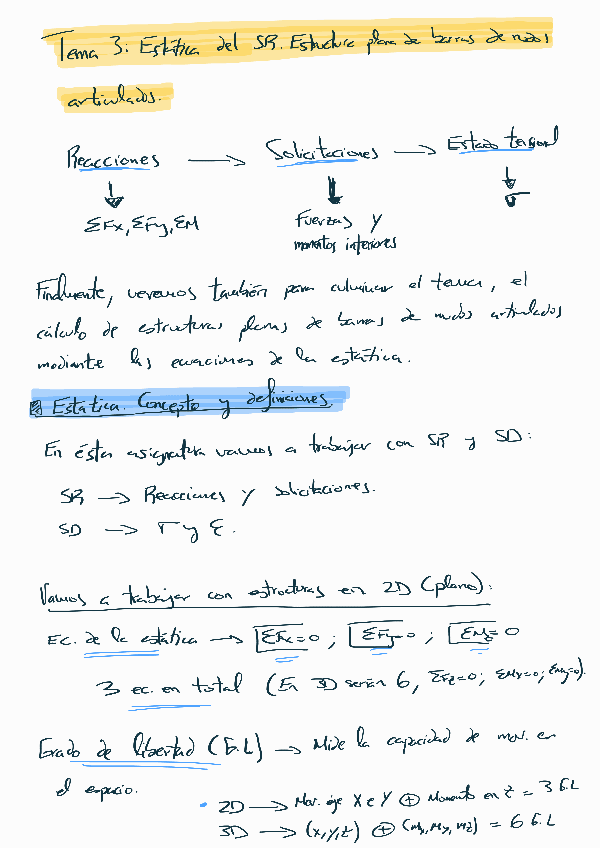 Tema 3: Estática del SR. Estructura plana de barras de nudos
articulados.
Reacciones → Solicitaciones → Estado tensional
ΣFx, ΣFy, ΣM
Fuerzas y
momentos interiores
σ
Finalmente, veremos también para culminar el tema, el
cálculo de estructuras planas de barras de nudos articulados
mediante las ecuaciones de la estática.
Estática. Concepto y definiciones
En ésta asignatura vamos a trabajar con SR y SD:
SR → Reacciones y solicitaciones.
SD → σ y ε.
Vamos a trabajar con estructuras en 2D (plano):
EC. de la estática → ΣFx=0 ; ΣFy=0 ; ΣMz=0
3 ec. en total (En 3D serían 6, ΣFz=0; ΣMx=0; ΣMy=0).
Grado de libertad (G.L) → Mide la capacidad de mov. en
el espacio.
• 2D → Mov. eje X e Y ⊕ Momento en z = 3 G.L
3D → (x,y,z) ⊕ (Mx, My, Mz) = 6 G.L